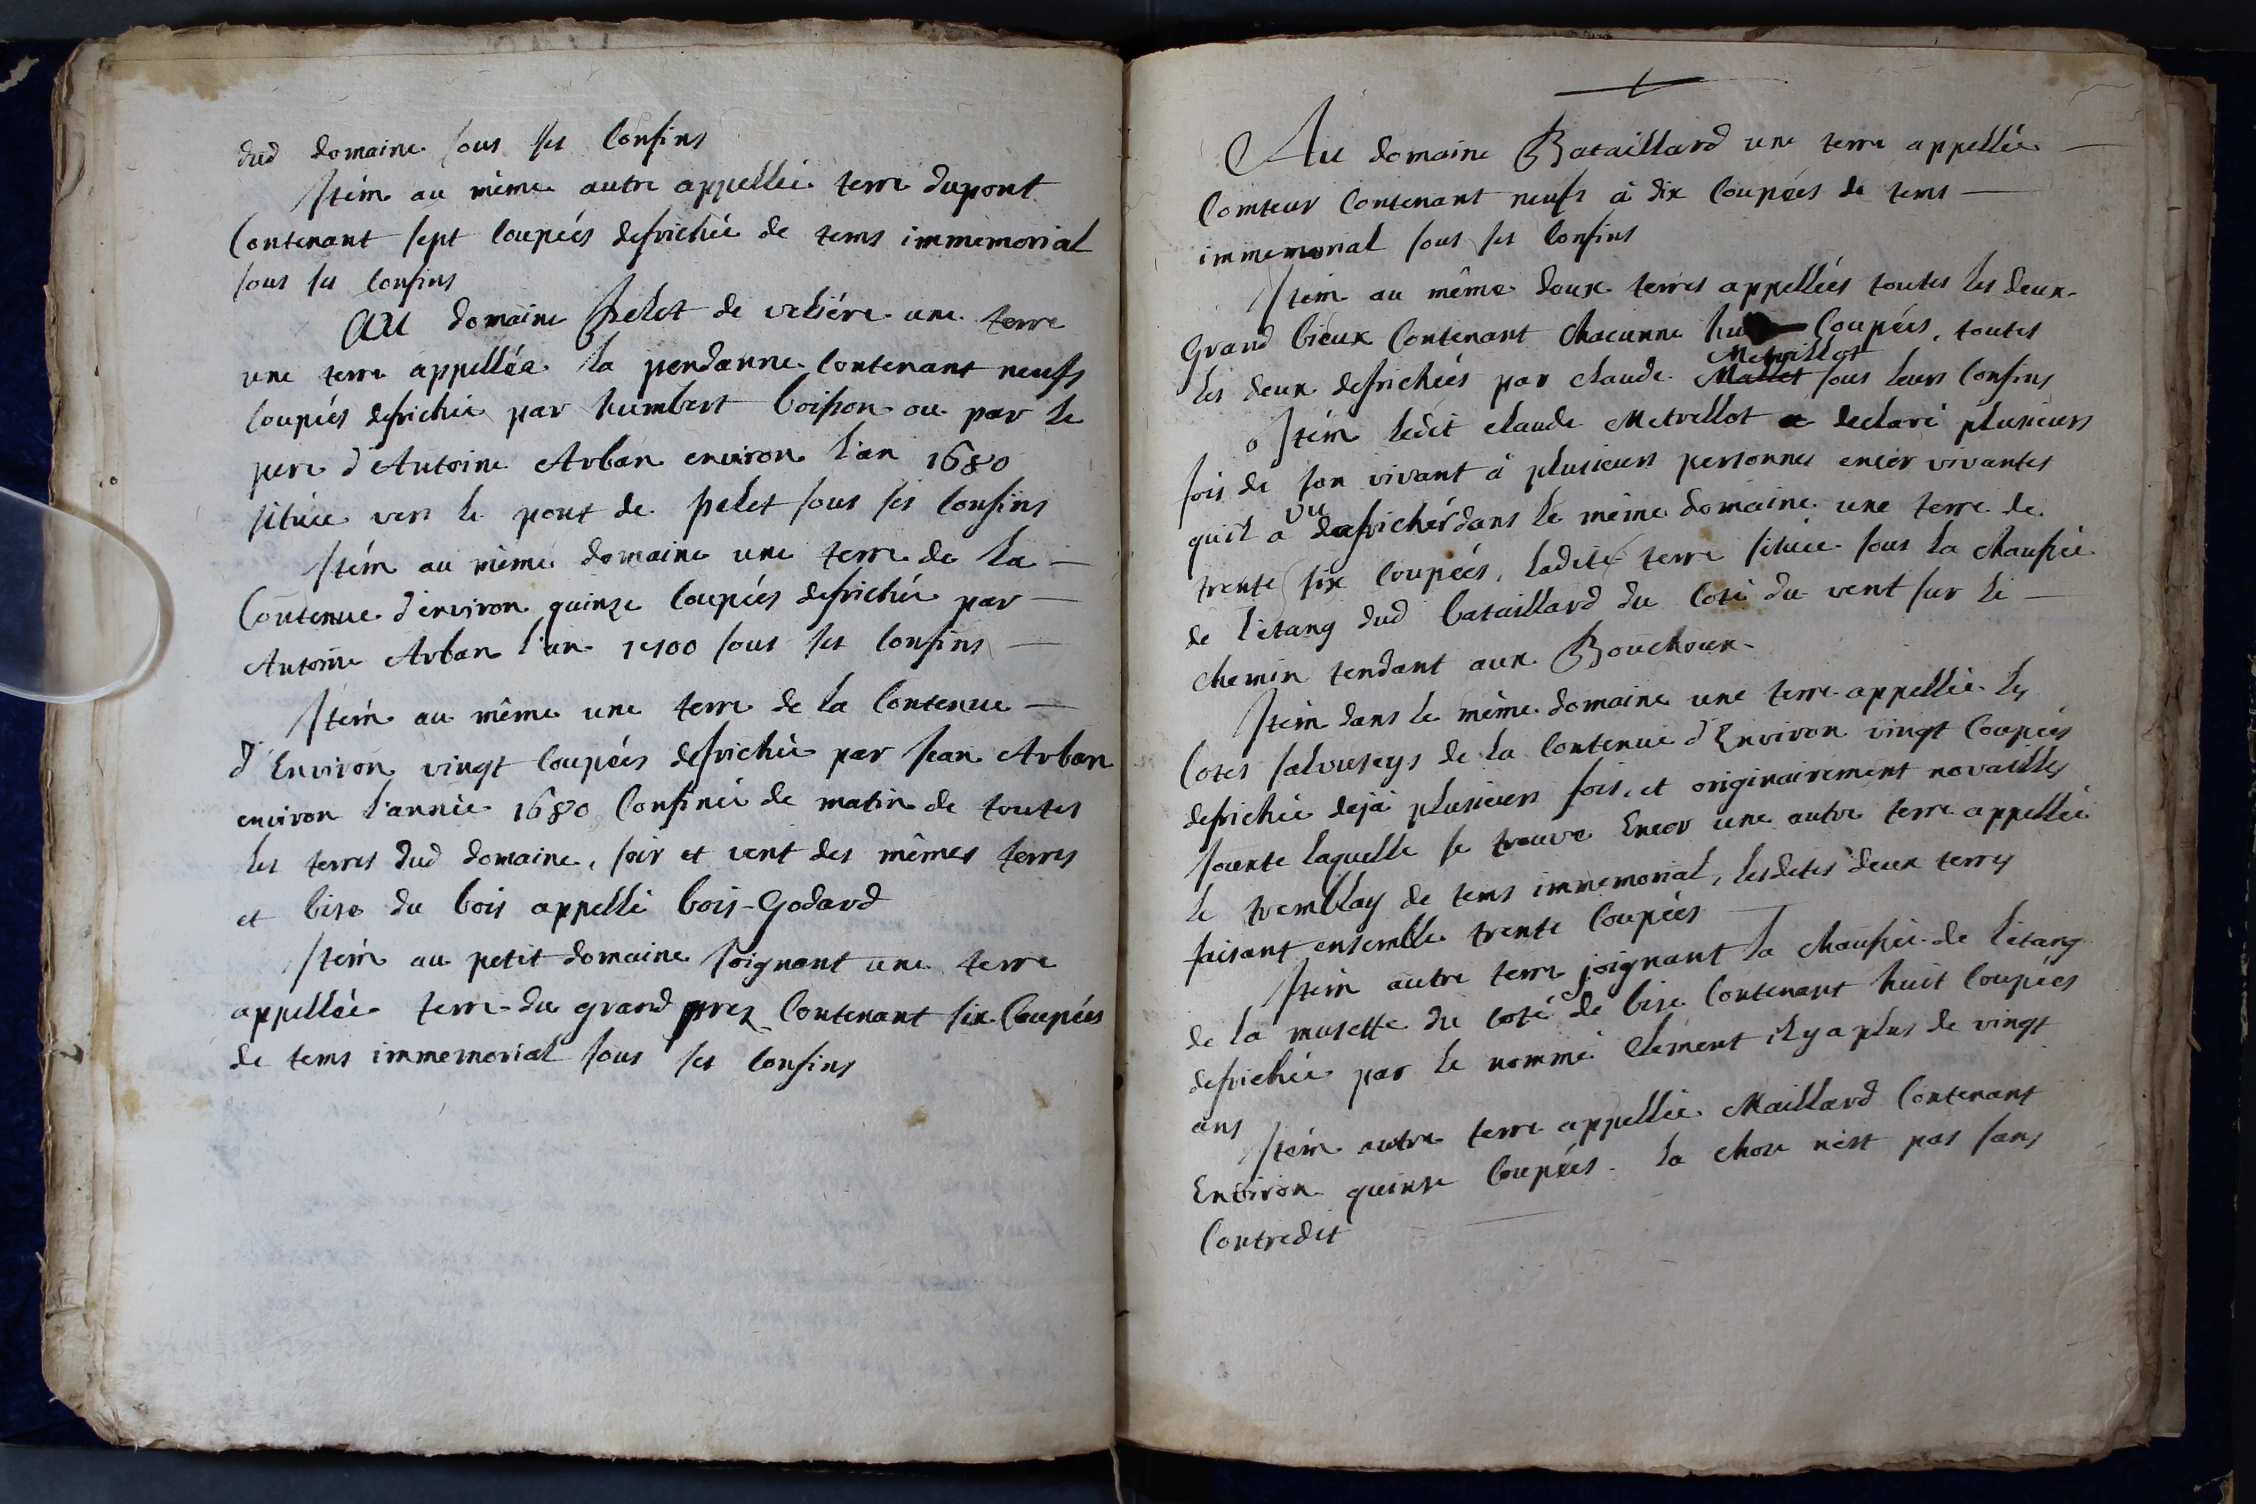 dud domaine sous ses confins
Item au même autre appellée terre dupont
Contenant sept coupées defrichée de tems immemorial
sous ses confins
AU domaine Pelet de veliére une terre
une terre appellée la pendanne contenant neufs
coupées defrichée par humbert boisson ou par le
pere d'Antoine Arban environ l'an 1680
située vers le pont de pelet sous ses confins
Item au même domaine une terre de la
Contenue d'environ quinze coupées defrichée par
Antoine Arban l'an 1700 sous ses confins
Item au même une terre de la contenue
d'Environ vingt coupées defrichée par Jean Arban
environ l'année 1680 Confinée de matin de toutes
les terres dud domaine, soir et vent des mêmes terres
et bise du bois appellé bois-Godard
Item au petit domaine soignant une terre
appellée terre du grand prez contenant six coupées
de tems immemorial sous ses confins
Au domaine Bataillard une terre appellée
comteur contenant neufs à dix coupées de tems
immemorial sous ses confins
Item au même deux terres appellées toutes les deux
Grand bieux contenant chacunne coupées, toutes
Metrillot
les deux defrichées par claude Mallet sous leurs confins
o Item ledit claude Metrillot a declaré plusieurs
fois de son vivant à plusieurs personnes encor vivantes
vu
quil a defricher dans le même domaine une terre de
trente six coupées, ladite terre située sous la chaussée
de l'étang dud bataillard du coté du vent sur le
chemin tendant aux Bouchoux
Item dans le même domaine une terre appellée les
cotes salvuseys de la contenue d'Environ vingt coupées
defrichée deja plusieurs fois, et originairement novailles
jouxte laquelle se trouve Encor une autre terre appellée
le tremblay de tems immemorial, lesdites deux terres
faisant ensemble trente coupées
Item autre terre joignant la chaussée de l'étang
de la musette du coté de bise contenant huit coupées
defrichée par le nommé Clement, il y a plus de vingt
ans
Item autre terre appellée Maillard contenant
Environ quinse coupées. la chose n'est pas sans
Contredit